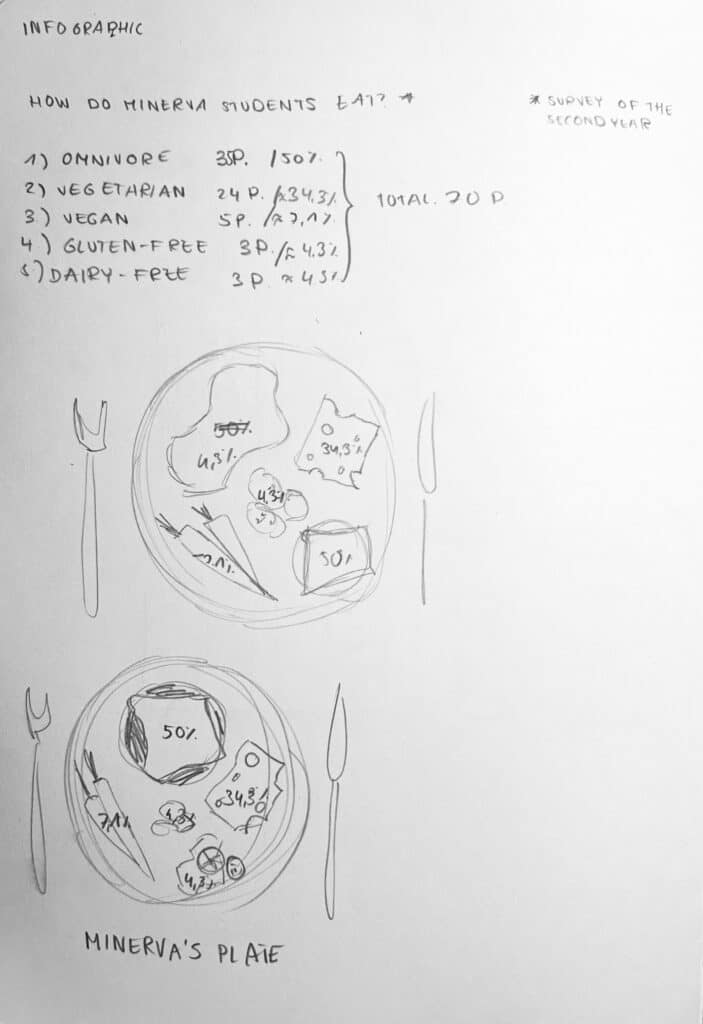 INFOGRAPHIC
HOW DO MINERVA STUDENTS EAT? *
* SURVEY OF THE
SECOND YEAR
1) OMNIVORE 35P. /50%
2) VEGETARIAN 24 P. /≈34,3%
3) VEGAN 5P. /≈7,1%
4) GLUTEN-FREE 3P. /≈4,3%
5) DAIRY-FREE 3 P. ≈ 4,3%
TOTAL. 70 P.
50%
4,3%
34,3%
4,3%
7,1%
50%
50%
34,3%
7,1%
4,3%
4,3%
MINERVA'S PLATE